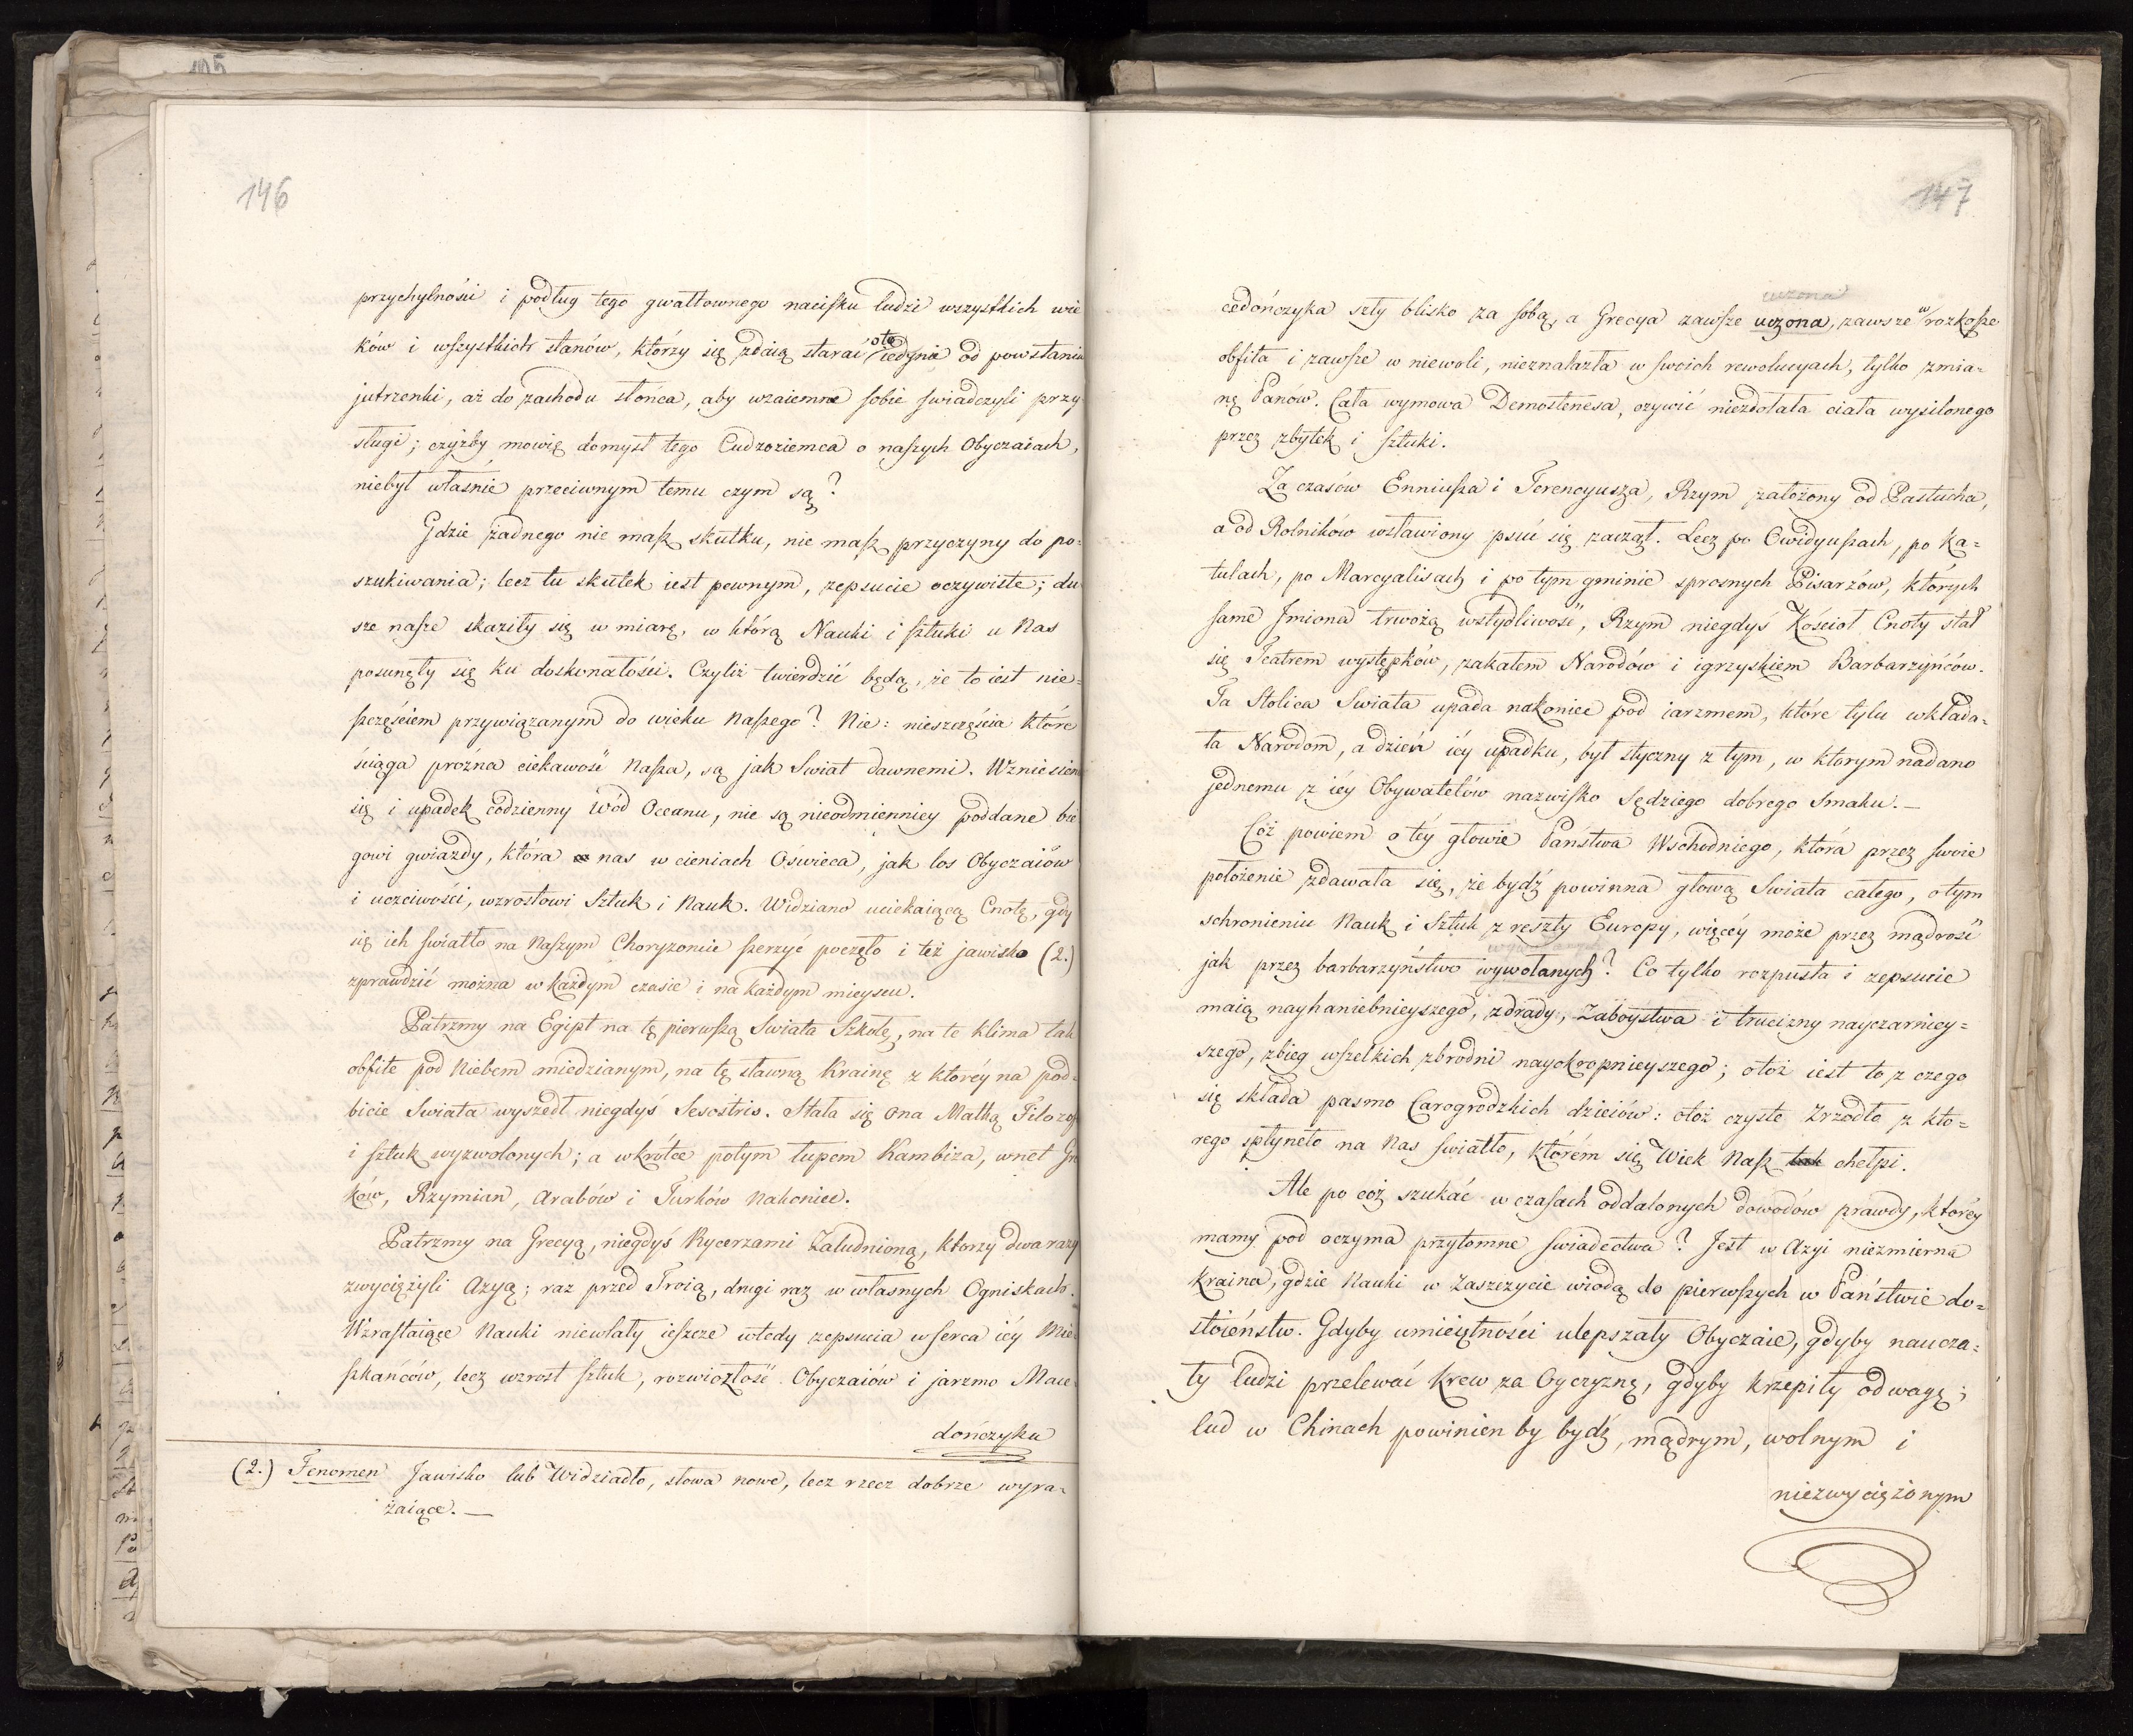 146
przychylności i podług tego gwałtownego nacisku ludzi wszystkich wie
ków i wszystkich stanów, którzy się zdaią starać oto iedynie od powstania
jutrzenki, aż do zachodu słońca, aby wzaiemne sobie swiadczyli przy
sługi; czyżby mowię domysł tego Cudzoziemca o naszych Obyczaiach,
niebył własnie przeciwnym temu czym są?
Gdzie żadnego nie masz skutku, nie masz przyczyny do po=
szukiwania; lecz tu skutek iest pewnym, zepsucie oczywiste; du
sze nasze skaziły się w miarę, w którą Nauki i sztuki u Nas
posunęły się ku doskonałości. Czyliż twierdzić będą, że to iest nie=
szczęściem przywiązanym do wieku Naszego? Nie: nieszczęścia które
ściąga prózna ciekawość Nasza, są jak Swiat dawnemi. Wzniesien
się i upadek codzienny Wód Oceanu, nie są nieodmienniey poddane bie
gowi gwiazdy, która nas w cieniach Oświeca, jak los Obyczaiów
i uczciwości, wzrostowi Sztuk i Nauk. Widziano uciekaiącą Cnotę, gdy
się ich swiatło na Naszym Choryzoncie szerzyć poczęło i też jawisko (2.)
zprawdzić można w każdym czasie i na każdym mieyscu.
Patrzmy na Egipt na tę pierwszą Swiata Szkołę, na te klima tak
obfite pod Niebem miedzianym, na tę sławną Krainę z ktoréy na pod=
bicie Swiata wyszedł niegdyś Sesostris. Stała się ona Matką Filozof
i sztuk wyzwolonych; a wkrótce potym łupem Kambiza, wnet Gre
ków, Rzymian, Arabów i Turków Nakoniec.
Patrzmy na Grecyą, niegdyś Rycerzami Zaludnioną, ktorzy dwa razy
zwyciężyli Azyą; raz przed Troią, drugi raz w własnych Ogniskach.
Wzrastaiące Nauki niewlały ieszcze wtedy zepsucia w serca iéy Mie
szkańców, lecz wzrost sztuk, rozwiozłość Obyczaiów i jarzmo Mace
dończyku
(2.) Fenomen Jawisko lub Widziadło, słowa nowe, lecz rzecz dobrze wyra=
żaiące. —
147
cuzona
cedończyka szły blisko za sobą, a Grecya zawsze uczona, zawsze w rozkosze
obfita i zawsze w niewoli, nieznalazła w swoich rewolucyach, tylko zmia=
nę Panów. Cała wymowa Demostenesa, ozywić niezdołała ciała wysilonego
przez zbytek i sztuki.
Za czasów Enniusza i Terencyusza, Rzym założony od Pastucha,
a od Rolników wsławiony psuć się zaczął. Lecz po Owidyuszach, po Ka=
tulach, po Marcyalisach i po tym gminie sprosnych Pisarzów, których
same Jmiona trwożą wstydliwość, Rzym niegdyś Kościoł Cnoty stał
się Teatrem występków, zakałem Narodów i igrzyskiem Barbarzyńców.
Ta Stolica Swiata upada nakoniec pod iarzmem, które tylu wkłada=
ła Narodom, a dzień iéy upadku, był styczny z tym, w ktorym nadano
jednemu z iéy Obywatelów nazwisko Sędziego dobrego Smaku. —
Cóż powiem o téy głowie Państwa Wschodniego, która przez swoie
położenie zdawała się, że bydź powinna głową Swiata całego, o tym
schronieniu Nauk i Sztuk z reszty Europy, więcéy może przez mądrość
jak przez barbarzyństwo wywołanych? Co tylko rozpusta i zepsucie
maią nayhaniebnieyszego, zdrady, Zaboystwa i trucizny nayczarniey=
szego, zbieg wszelkich zbrodni nayokropnieyszego; otoż iest to z czego
się składa pasmo Carogrodzkich dzieiów: otoż czyste Zrzodło z kto=
rego spłyneło na Nas swiatło, którém się Wiek Nasz tak chełpi.
Ale po coż szukać w czasach oddalonych dowodów prawdy, któréy
mamy pod oczyma przytomne swiadectwa? Jest w Azyi niezmierna
Kraina, gdzie Nauki w Zaszczycie wiodą do pierwszych w Państwie do=
stoieństw. Gdyby umieiętności ulepszały Obyczaie, gdyby naucza=
ły ludzi przelewać Krew za Oyczyznę, gdyby krzepiły odwagę;
lud w Chinach powinien by bydź, mądrym, wolnym i
niezwyciężonym